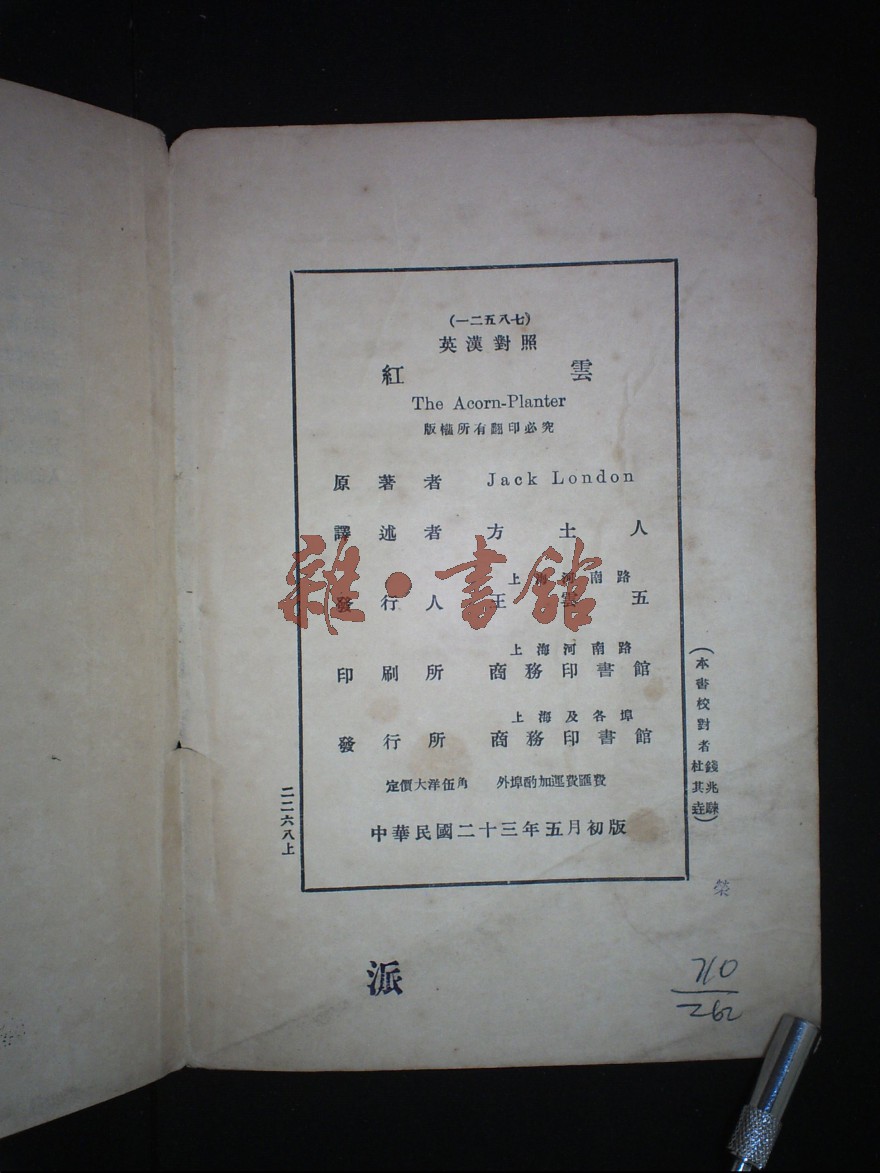 (一二五八七)
英漢對照
紅雲
The Acorn-Planter
版權所有翻印必究
原著者 Jack London
譯述者 方土人
上海河南路
發行人 王雲五
上海河南路
印刷所 商務印書館
上海及各埠
發行所 商務印書館
定價大洋伍角 外埠酌加運費匯費
中華民國二十三年五月初版
(本書校對者 錢兆騄 杜其垚)
二二六八上
雜·書館
派
710
292